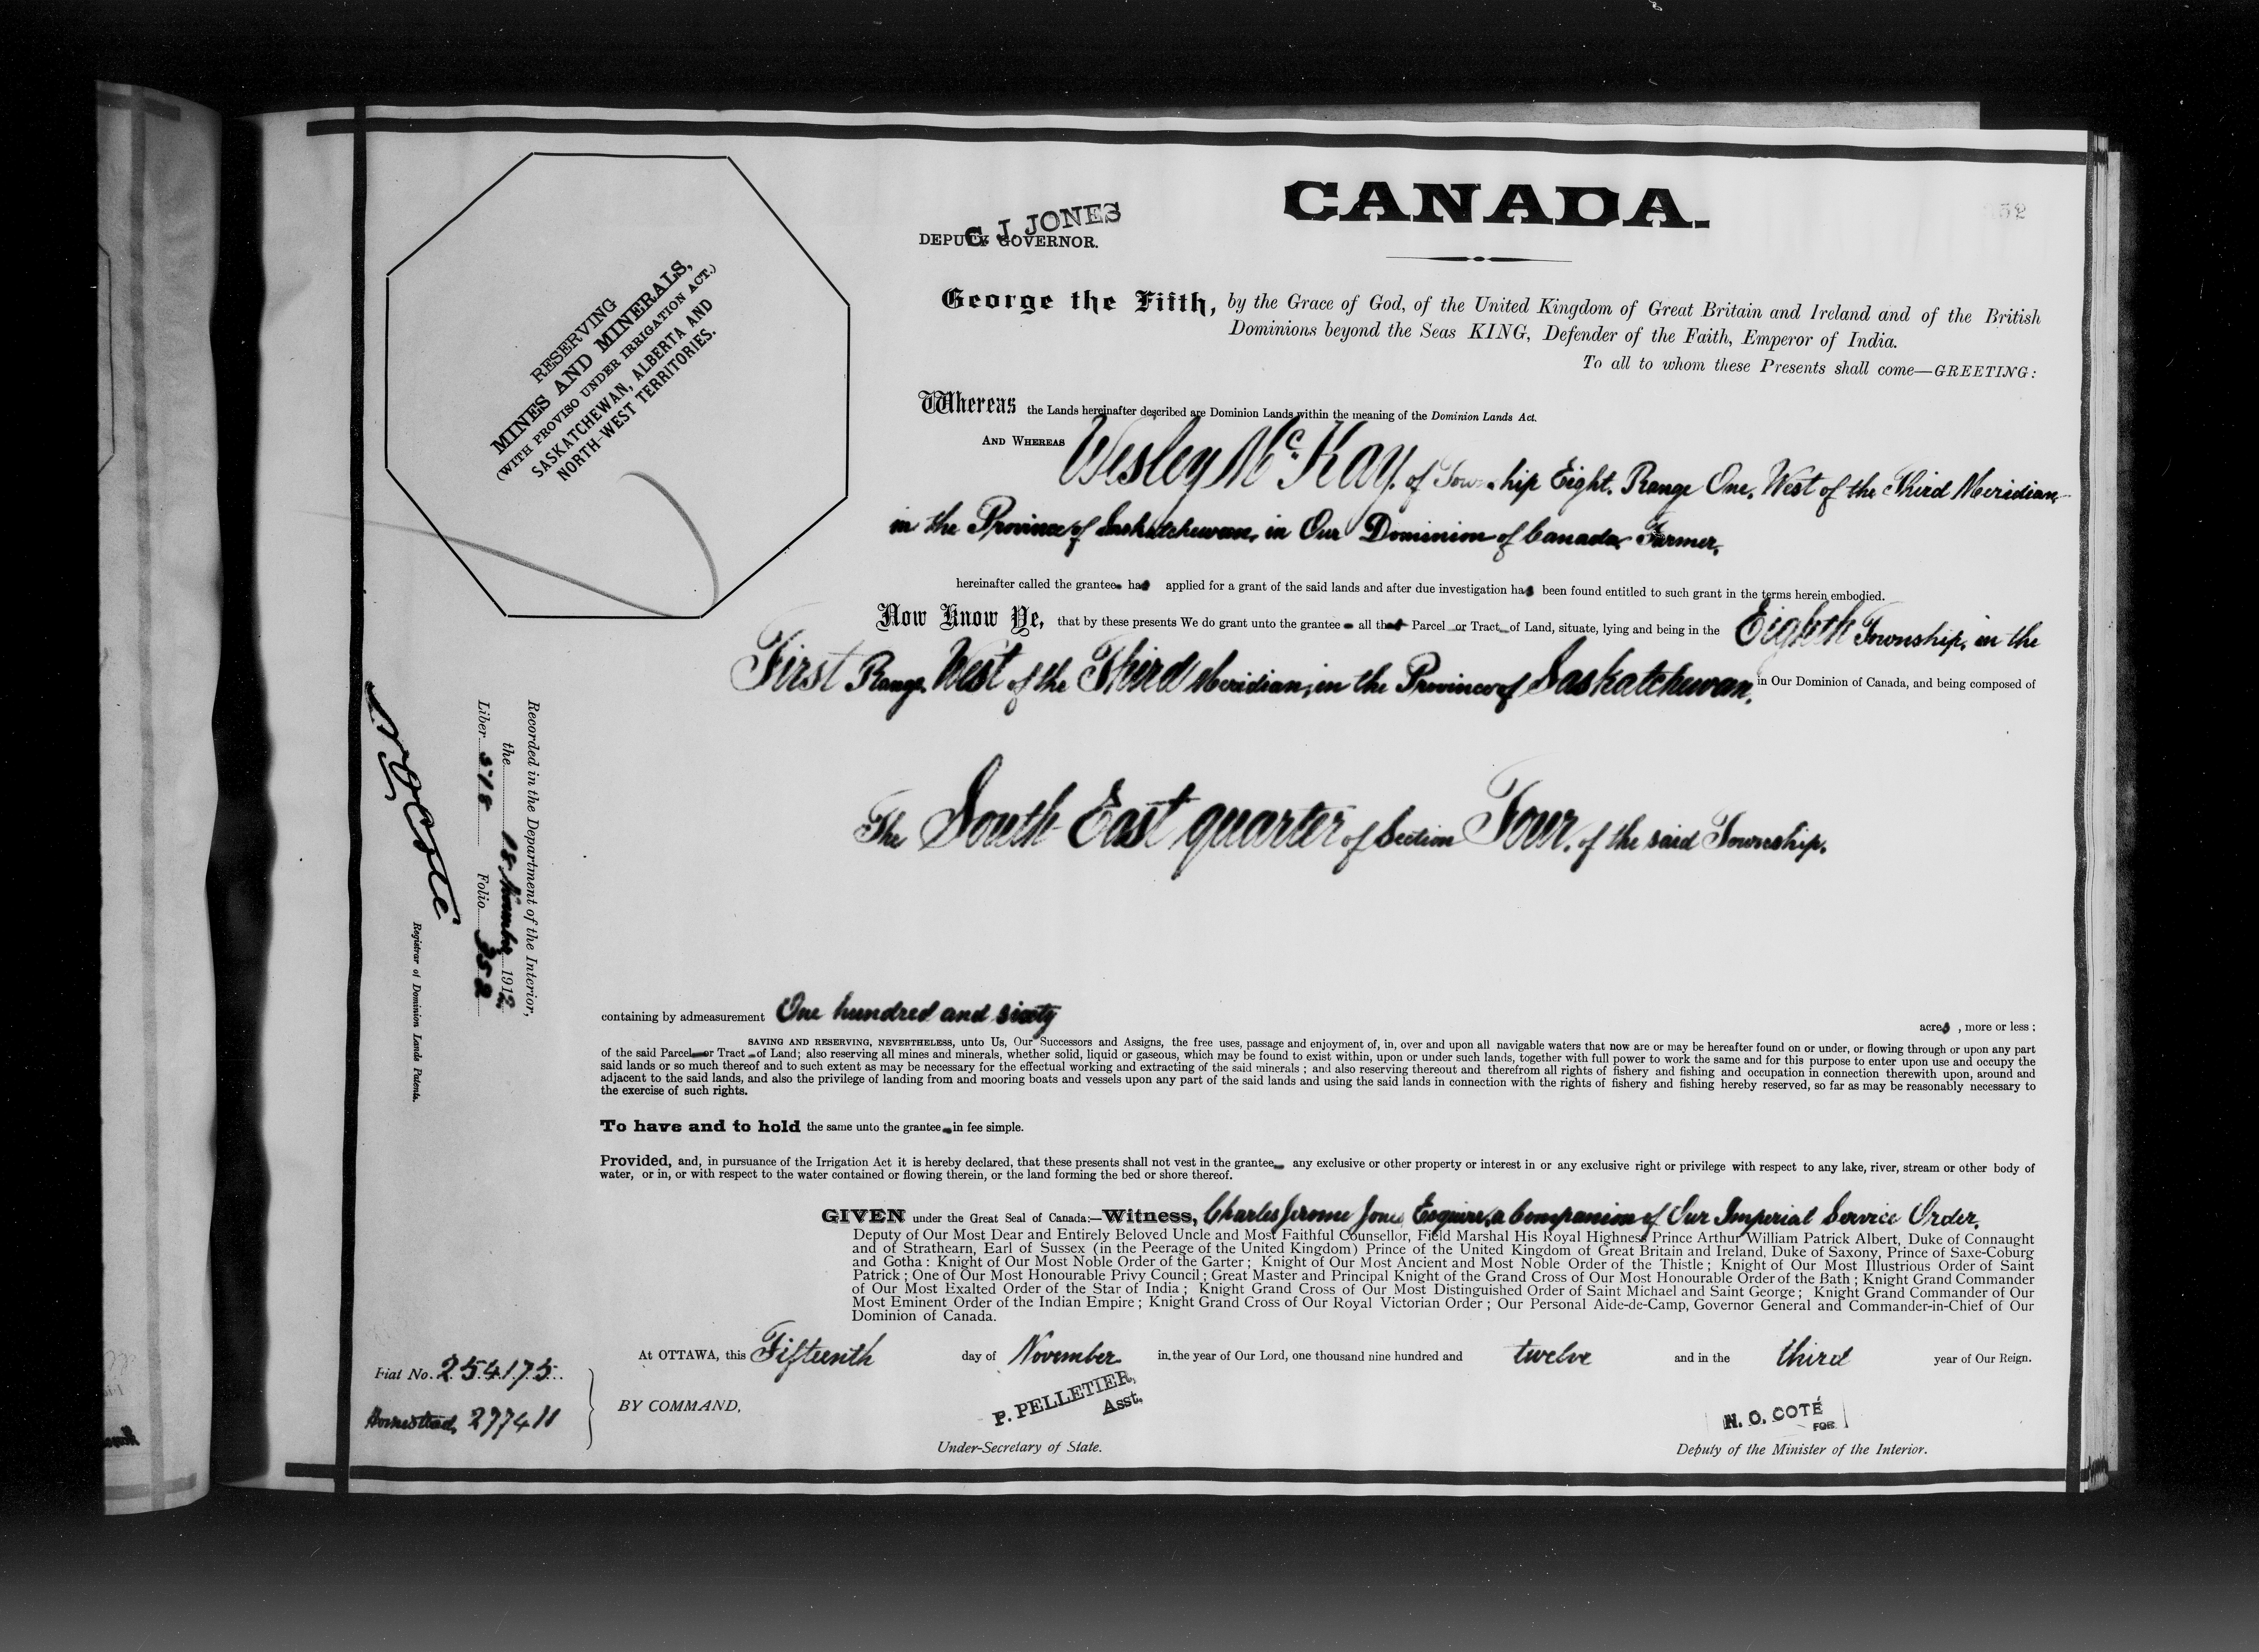 CANADA.
C. J. JONES
DEPUTY GOVERNOR.
RESERVING
MINES AND MINERALS,
(WITH PROVISO UNDER IRRIGATION ACT.)
SASKATCHEWAN, ALBERTA AND
NORTH-WEST TERRITORIES.
George the Fifth, by the Grace of God, of the United Kingdom of Great Britain and Ireland and of the British
Dominions beyond the Seas KING, Defender of the Faith, Emperor of India.
To all to whom these Presents shall come—GREETING:
Whereas the Lands hereinafter described are Dominion Lands within the meaning of the Dominion Lands Act.
AND WHEREAS Wesley McKay, of Township Eight, Range One, West of the Third Meridian,
in the Province of Saskatchewan, in Our Dominion of Canada, Farmer,
hereinafter called the grantee has applied for a grant of the said lands and after due investigation has been found entitled to such grant in the terms herein embodied.
Now Know Ye, that by these presents We do grant unto the grantee all that Parcel or Tract of Land, situate, lying and being in the Eighth Township, in the
First Range, West of the Third Meridian, in the Province of Saskatchewan, in Our Dominion of Canada, and being composed of
The South East quarter of Section Four, of the said Township.
Recorded in the Department of the Interior,
the 18 November 1912
Liber 518 Folio 352
N O Coté
Registrar of Dominion Lands Patents.
containing by admeasurement One hundred and sixty acres, more or less;
SAVING AND RESERVING, NEVERTHELESS, unto Us, Our Successors and Assigns, the free uses, passage and enjoyment of, in, over and upon all navigable waters that now are or may be hereafter found on or under, or flowing through or upon any part
of the said Parcel or Tract of Land; also reserving all mines and minerals, whether solid, liquid or gaseous, which may be found to exist within, upon or under such lands, together with full power to work the same and for this purpose to enter upon use and occupy the
said lands or so much thereof and to such extent as may be necessary for the effectual working and extracting of the said minerals; and also reserving thereout and therefrom all rights of fishery and fishing and occupation in connection therewith upon, around and
adjacent to the said lands, and also the privilege of landing from and mooring boats and vessels upon any part of the said lands and using the said lands in connection with the rights of fishery and fishing hereby reserved, so far as may be reasonably necessary to
the exercise of such rights.
To have and to hold the same unto the grantee in fee simple.
Provided, and, in pursuance of the Irrigation Act it is hereby declared, that these presents shall not vest in the grantee any exclusive or other property or interest in or any exclusive right or privilege with respect to any lake, river, stream or other body of
water, or in, or with respect to the water contained or flowing therein, or the land forming the bed or shore thereof.
GIVEN under the Great Seal of Canada:—Witness, Charles Jerome Jones, Esquire, a Companion of Our Imperial Service Order,
Deputy of Our Most Dear and Entirely Beloved Uncle and Most Faithful Counsellor, Field Marshal His Royal Highness Prince Arthur William Patrick Albert, Duke of Connaught
and of Strathearn, Earl of Sussex (in the Peerage of the United Kingdom) Prince of the United Kingdom of Great Britain and Ireland, Duke of Saxony, Prince of Saxe-Coburg
and Gotha: Knight of Our Most Noble Order of the Garter; Knight of Our Most Ancient and Most Noble Order of the Thistle; Knight of Our Most Illustrious Order of Saint
Patrick; One of Our Most Honourable Privy Council; Great Master and Principal Knight of the Grand Cross of Our Most Honourable Order of the Bath; Knight Grand Commander
of Our Most Exalted Order of the Star of India; Knight Grand Cross of Our Most Distinguished Order of Saint Michael and Saint George; Knight Grand Commander of Our
Most Eminent Order of the Indian Empire; Knight Grand Cross of Our Royal Victorian Order; Our Personal Aide-de-Camp, Governor General and Commander-in-Chief of Our
Dominion of Canada.
At OTTAWA, this Fifteenth day of November in the year of Our Lord, one thousand nine hundred and twelve and in the third year of Our Reign.
Fiat No. 254175
Homestead, 277411
BY COMMAND,
P. PELLETIER,
Asst.
Under-Secretary of State.
N. O. COTÉ
FOR
Deputy of the Minister of the Interior.